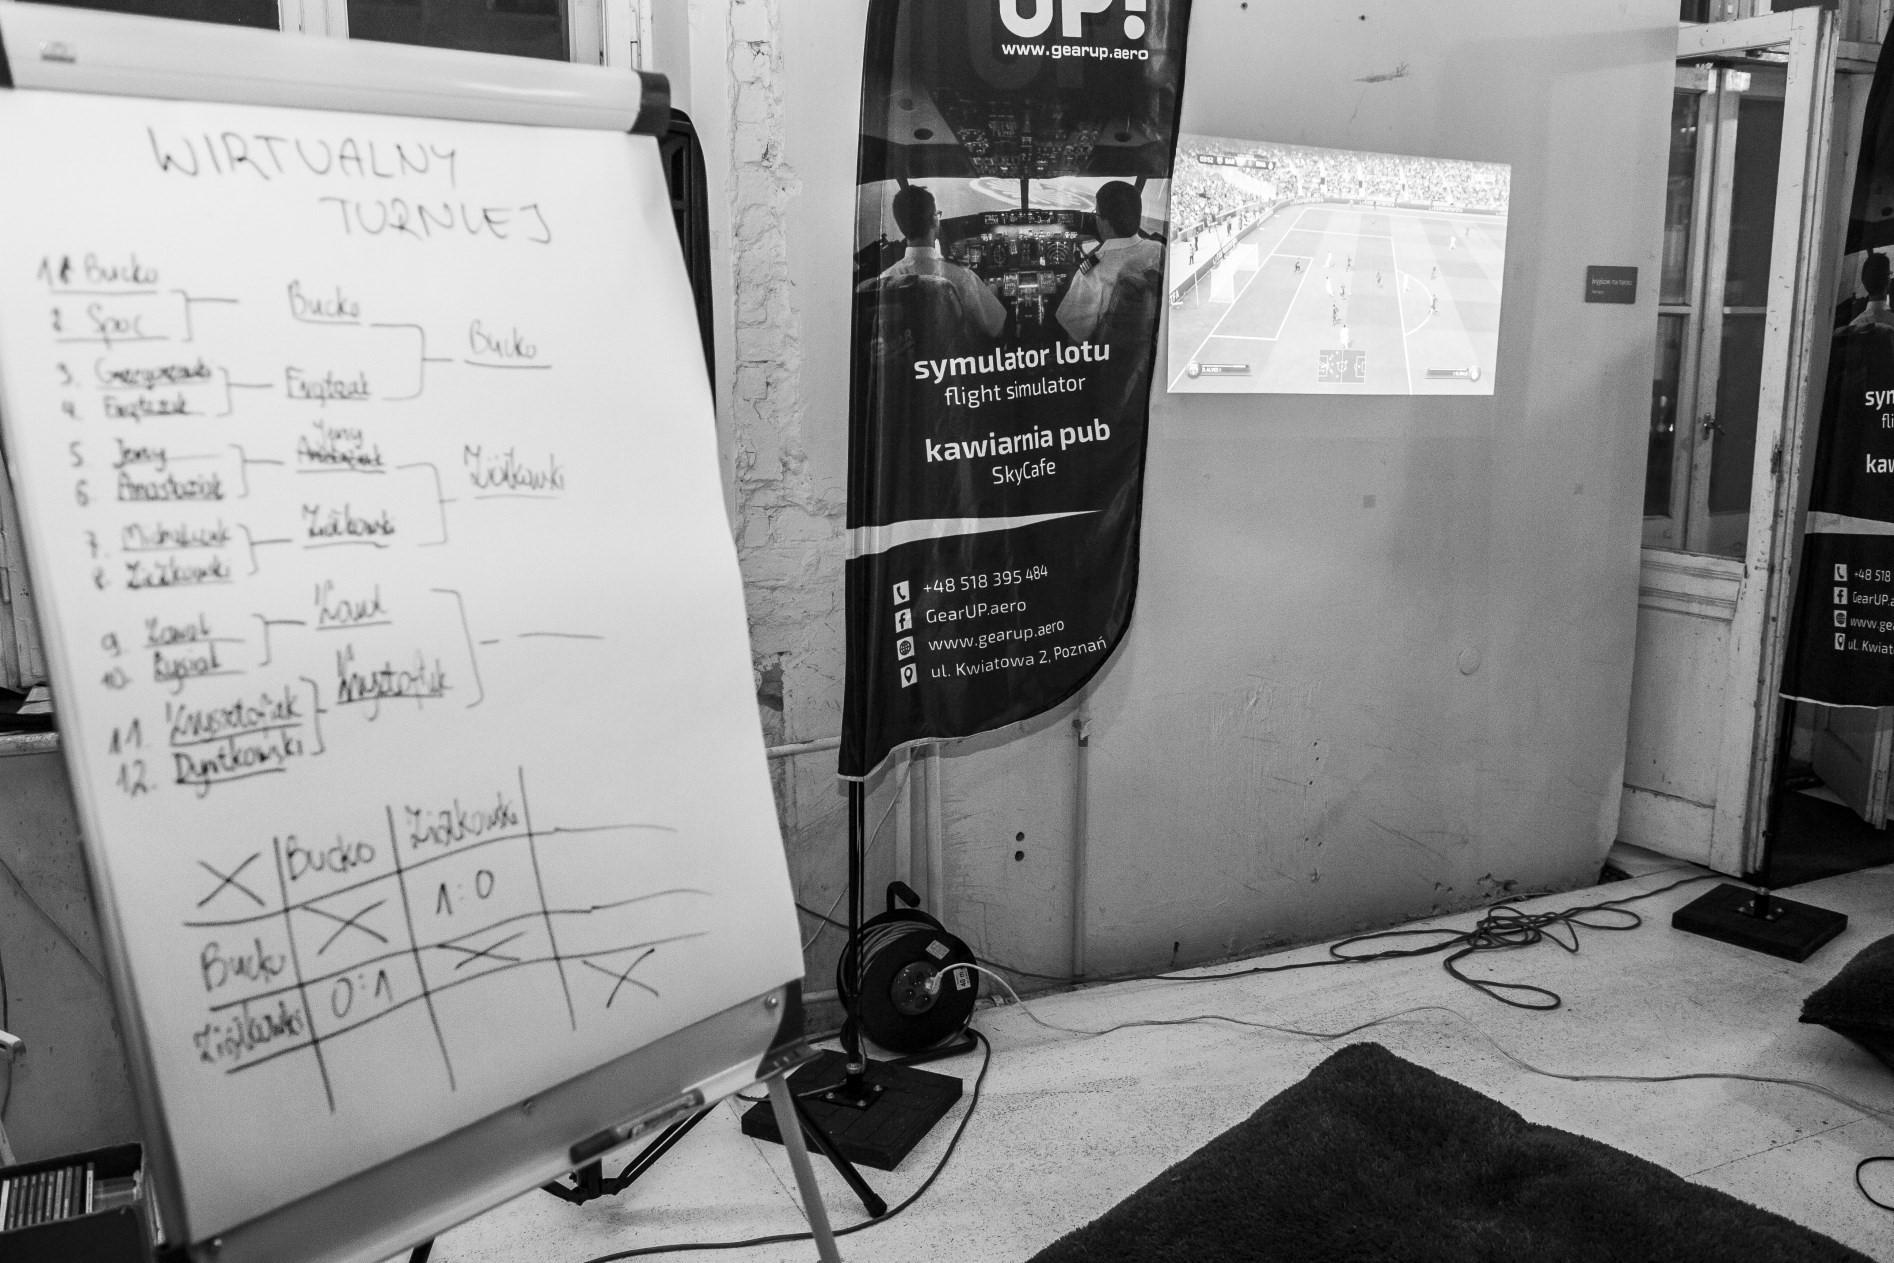 WIRTUALNY
TURNIEJ
1. Bucko
2. Spoc
3.
4.
5. Jerry
6. Anastaziak
7. Michalczak
8. Ziółkowski
9. Zawal
10. Rysiak
11. Krysztofiak
12. Dyntkowski
Bucko
Jerry
Anastaziak
Ziółkowski
Krysztofiak
Bucko
Ziółkowski
X Bucko Ziółkowski
Bucko X 1:0
Ziółkowski 0:1 X X
UP!
www.gearup.aero
symulator lotu
flight simulator
kawiarnia pub
SkyCafe
+48 518 395 484
GearUP.aero
www.gearup.aero
ul. Kwiatowa 2, Poznań
sym
fli
kaw
+48 518
GearUP.a
www.gea
ul. Kwiat